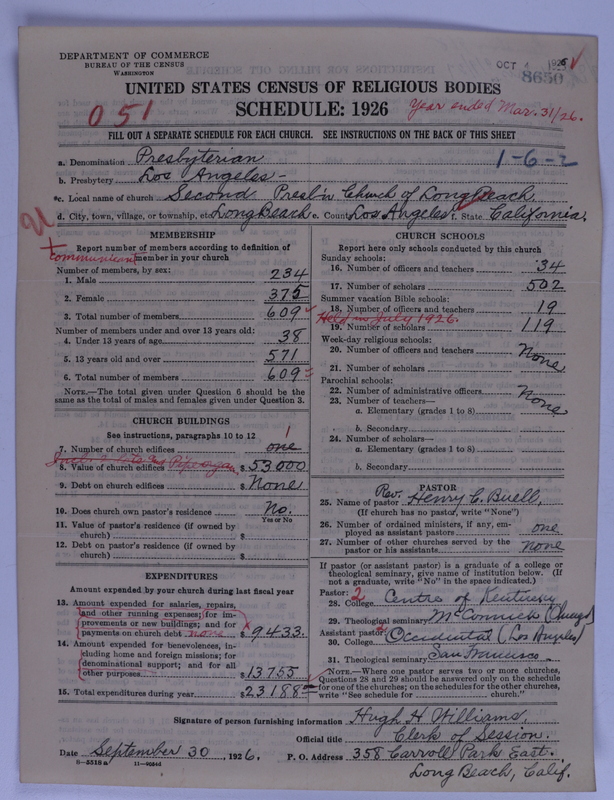 DEPARTMENT OF COMMERCE
BUREAU OF THE CENSUS
WASHINGTON
OCT 4 1926
8650
UNITED STATES CENSUS OF RELIGIOUS BODIES
SCHEDULE: 1926
051
Year ended Mar. 31/26.
FILL OUT A SEPARATE SCHEDULE FOR EACH CHURCH. SEE INSTRUCTIONS ON THE BACK OF THIS SHEET
a. Denomination Presbyterian
1-6-2
b. Presbytery Los Angeles-
*c. Local name of church Second Presb'n Church of Long Beach,
d. City, town, village, or township, etc. Long Beach e. County Los Angeles f. State California.
MEMBERSHIP
Report number of members according to definition of
communicant member in your church
Number of members, by sex:
1. Male 234
2. Female 375
3. Total number of members 609
Number of members under and over 13 years old:
4. Under 13 years of age 38
5. 13 years old and over 571
6. Total number of members 609
NOTE.—The total given under Question 6 should be
the same as the total of males and females given under Question 3.
CHURCH BUILDINGS
See instructions, paragraphs 10 to 12
7. Number of church edifices one 1
Incl. 2 lots and Pipe organ
8. Value of church edifices $ 53,000
9. Debt on church edifices $ None
10. Does church own pastor's residence No.
Yes or No
11. Value of pastor's residence (if owned by
church) $
12. Debt on pastor's residence (if owned by
church) $
EXPENDITURES
Amount expended by your church during last fiscal year
13. Amount expended for salaries, repairs,
and other running expenses; for im-
provements or new buildings; and for
payments on church debt none $ 9433.
14. Amount expended for benevolences, in-
cluding home and foreign missions; for
denominational support; and for all
other purposes $ 13755
15. Total expenditures during year $ 23188
CHURCH SCHOOLS
Report here only schools conducted by this church
Sunday schools:
16. Number of officers and teachers 34
17. Number of scholars 502
Summer vacation Bible schools:
18. Number of officers and teachers 19
Held in July 1926.
19. Number of scholars 119
Week-day religious schools:
20. Number of officers and teachers None
21. Number of scholars
Parochial schools:
22. Number of administrative officers None
23. Number of teachers—
a. Elementary (grades 1 to 8)
b. Secondary
24. Number of scholars—
a. Elementary (grades 1 to 8)
b. Secondary
PASTOR
25. Name of pastor Rev. Henry C. Buell,
(If church has no pastor, write "None")
26. Number of ordained ministers, if any, em-
ployed as assistant pastors one
27. Number of other churches served by the
pastor or his assistants none
If pastor (or assistant pastor) is a graduate of a college or
theological seminary, give name of institution below. (If
not a graduate, write "No" in the space indicated.)
Pastor: 2
28. College Centre of Kentucky
29. Theological seminary McCormick (Chicago)
Assistant pastor:
30. College Occidental (Los Angeles)
31. Theological seminary San Francisco.
NOTE.—Where one pastor serves two or more churches,
Questions 28 and 29 should be answered only on the schedule
for one of the churches; on the schedules for the other churches,
write "See schedule for church."
Signature of person furnishing information Hugh H Williams,
Official title Clerk of Session.
Date September 30, 1926. P. O. Address 358 Carroll Park East.
8-5518a 11-90544
Long Beach, Calif.